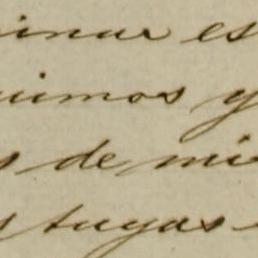 inar es
uimos y
s de mi
s tuyas